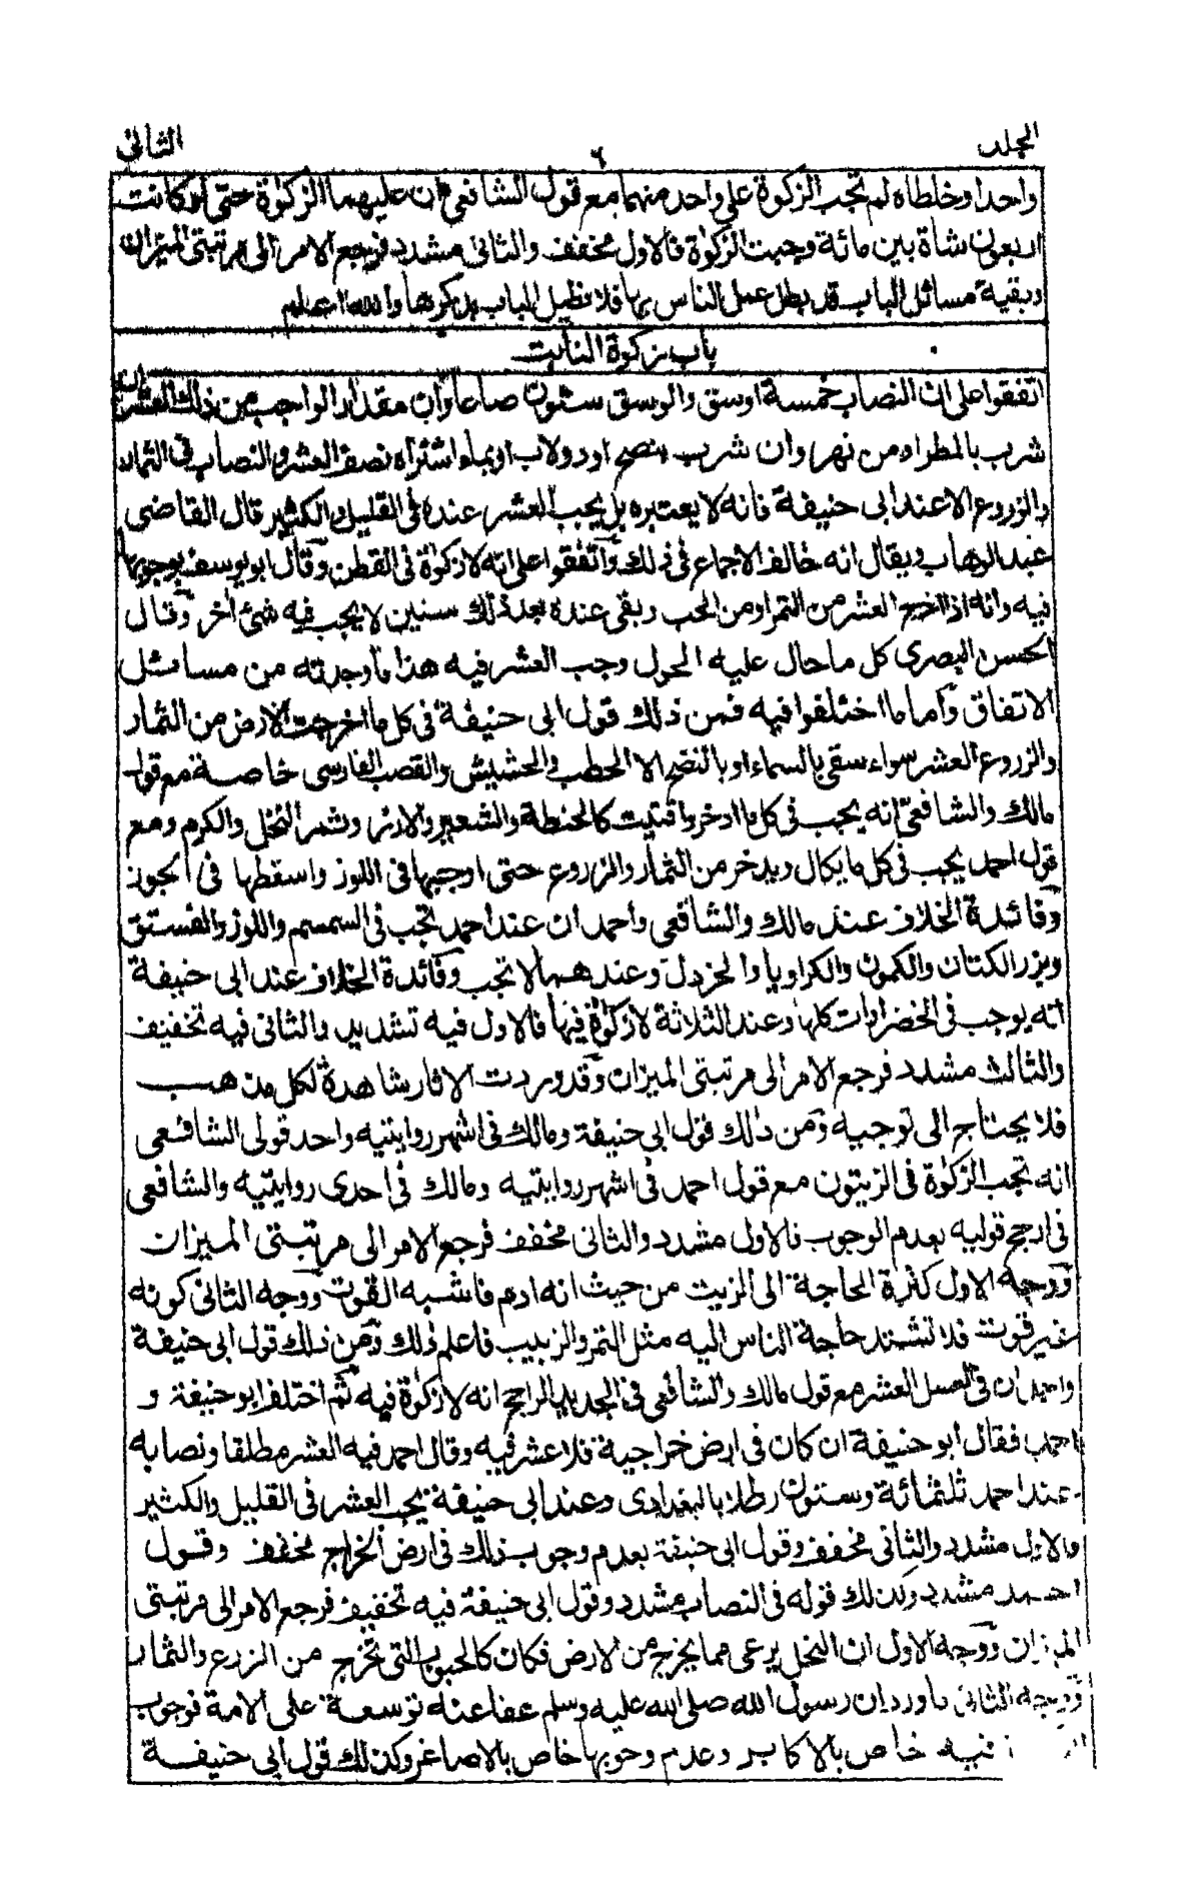 المجلد
٦
الثانى
واحدا وخلطاه لم تجب الزكوة على واحد منهما مع قول الشافعى ان عليهما الزكوٰة حتى لو كانت
اربعون شاة بين مائة وجبت الزكوٰة فالاول مخفف والثانى مشدد فرجع الامر الى مرتبتى الميزان
وبقية مسائل الباب قد بطل عمل الناس بها فلا نطيل الباب بذكرها والله اعلم
باب زكوة النابت
اتفقوا على ان النصاب خمسة اوسق والوسق ستون صاعا وان مقدار الواجب من ذلك العشر ان
شرب بالمطر او من نهر وان شرب بنضح او دولاب او بماء اشتراه نصف العشر والنصاب فى الثمار
والزروع الا عند ابى حنيفة فانه لا يعتبره بل يجب العشر عنده فى القليل والكثير قال القاضى
عبد الوهاب ويقال انه خالف الاجماع فى ذلك واتفقوا على انه لا زكوٰة فى القطن وقال ابو يوسف بوجوبها
فيه وانه اذا اخرج العشر من التمر او من الحب وبقى عنده بعد ذلك سنين لا يجب فيه شئ اخر وقال
الحسن البصرى كل ما حال عليه الحول وجب العشر فيه هذا ما وجدته من مسائل
الاتفاق وأما ما اختلفوا فيه فمن ذلك قول ابى حنيفة فى كل ما اخرجت الارض من الثمار
والزروع العشر سواء سقى بالسماء او بالنضح الا الحطب والحشيش والقصب الفارسى خاصة مع قول
مالك والشافعى انه يجب فى كل ما ادخر واقتيت كالحنطة والشعير والارز وثمر النخل والكرم ومع
قول احمد يجب فى كل ما يكال ويدخر من الثمار والزروع حتى اوجبها فى اللوز واسقطها فى الجوز
وفائدة الخلاف عند مالك والشافعى واحمد ان عند احمد تجب فى السمسم واللوز والفستق
وبزر الكتان والكمون والكراويا والخردل وعندهما لا تجب وفائدة الخلاف عند ابى حنيفة
انه يوجب فى الخضراوات كلها وعند الثلاثة لا زكوٰة فيها فالاول فيه تشديد والثانى فيه تخفيف
والثالث مشدد فرجع الامر الى مرتبتى الميزان وقد وردت الاثار شاهدة لكل مذهب
فلا يحتاج الى توجيه ومن ذلك قول ابى حنيفة ومالك فى اشهر روايتيه واحد قولى الشافعى
انه تجب الزكوٰة فى الزيتون مع قول احمد فى اشهر روايتيه ومالك فى احدى روايتيه والشافعى
فى ارجح قوليه بعدم الوجوب فالاول مشدد والثانى مخفف فرجع الامر الى مرتبتى الميزان
ووجه الاول كثرة الحاجة الى الزيت من حيث انه ادم فاشبه القوت ووجه الثانى كونه
غير قوت فلا تشتد حاجة الناس اليه مثل التمر والزبيب فاعلم ذلك ومن ذلك قول ابى حنيفة
واحمد ان فى العسل العشر مع قول مالك والشافعى فى الجديد الراجح انه لا زكوٰة فيه ثم اختلف ابو حنيفة و
احمد فقال ابو حنيفة ان كان فى ارض خراجية فلا عشر فيه وقال احمد فيه العشر مطلقا ونصابه
عند احمد ثلثمائة وستون رطلا بالبغدادى وعند ابى حنيفة يجب العشر فى القليل والكثير
والاول مشدد والثانى مخفف وقول ابى حنيفة بعدم وجوب ذلك فى ارض الخراج مخفف وقول
احمد مشدد وكذلك قوله فى النصاب مشدد وقول ابى حنيفة فيه تخفيف فرجع الامر الى مرتبتى
الميزان ووجه الاول ان النحل يرعى مما يخرج من الارض فكان كالحبوب التى تخرج من الزرع والثمار
ووجه الثانى ما ورد ان رسول الله صلى الله عليه وسلم عفا عنه توسعة على الامة فوجوب
فيه خاص بالاكابر وعدم وجوبها خاص بالاصاغر وكذلك قول ابى حنيفة